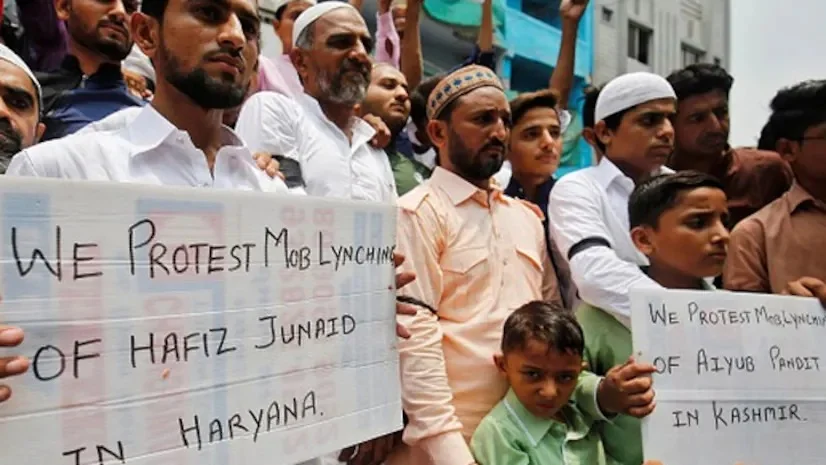 WE PROTEST MOB LYNCHING
OF HAFIZ JUNAID
IN HARYANA.
WE PROTEST MOB LYNCHING
OF AIYUB PANDIT
IN KASHMIR.